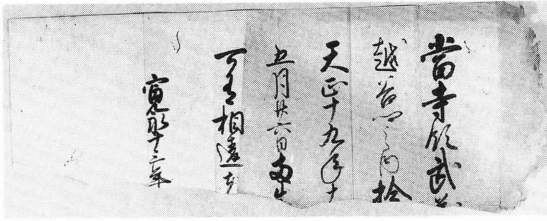 當寺領武蔵
越谷郷之内拾
天正十九年十
五月廿六日両
可有相違者
寛永十三年